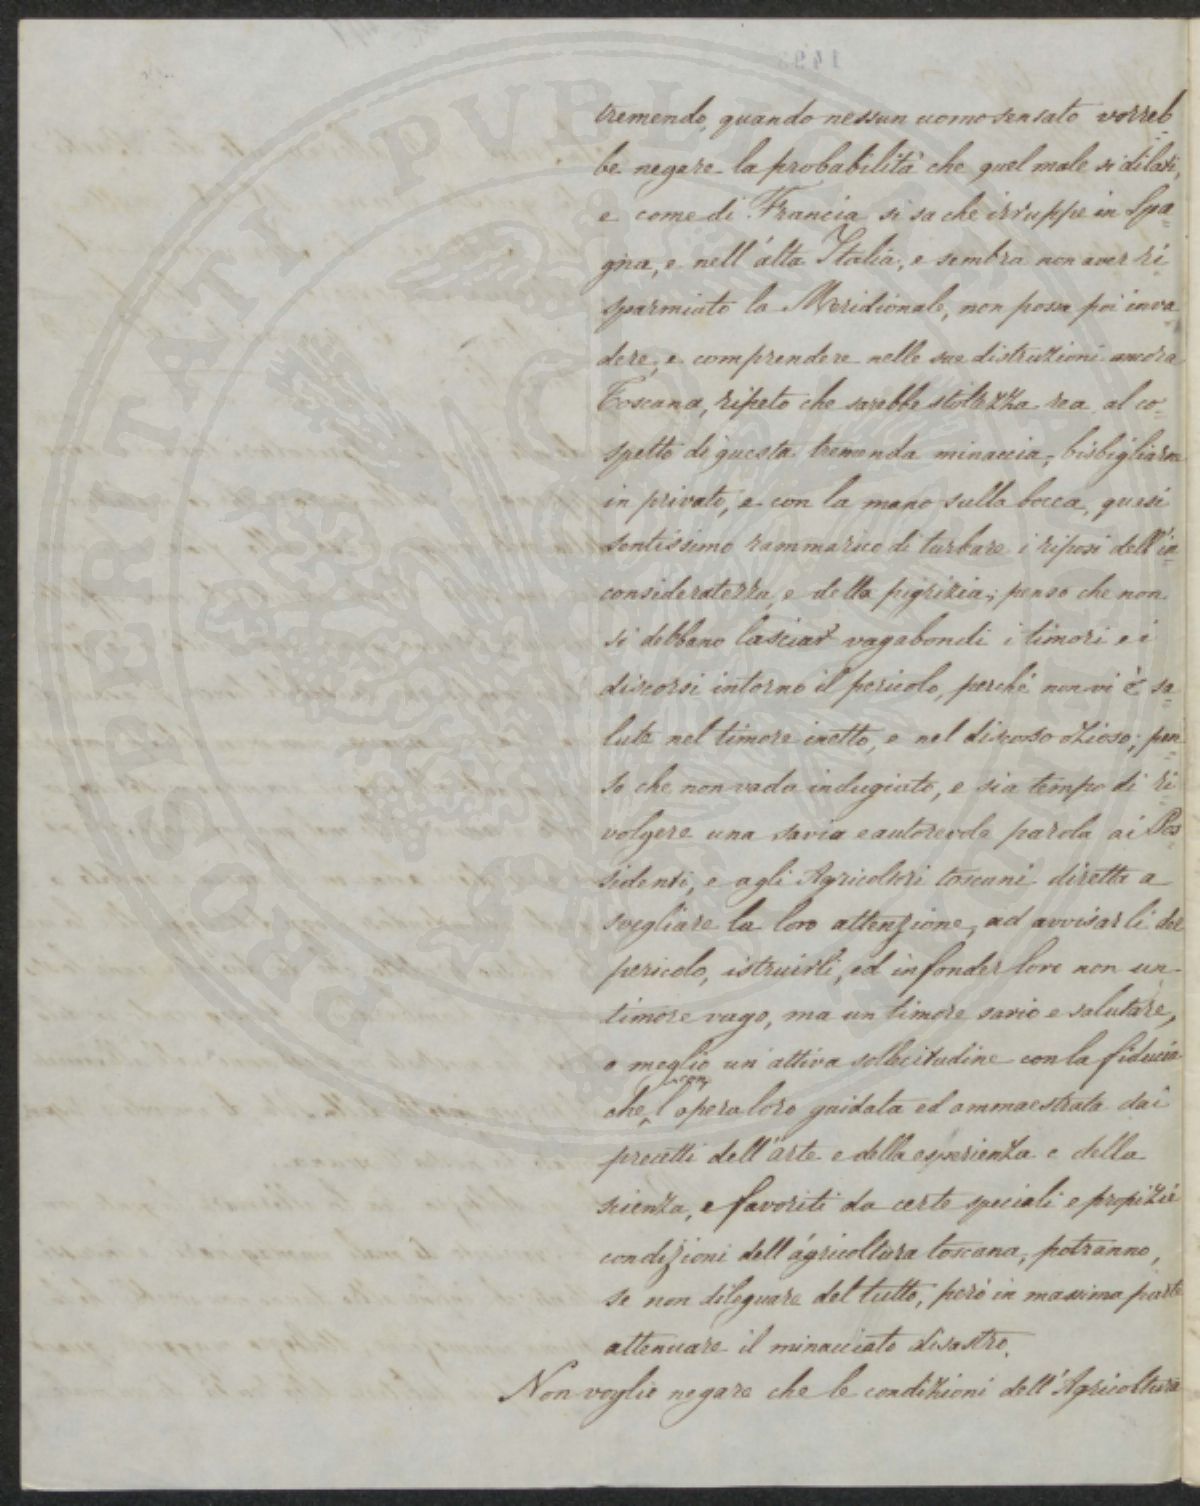 tremendo, quando nessun uomo sensato vorreb=
be negare la probabilità che quel male si dilati,
e come di Francia si sa che irruppe in Spa=
gna, e nell'alta Italia, e sembra non aver ri=
sparmiato la Meridionale, non possa poi inva=
dere, e comprendere nelle sue distruzioni ancora
Toscana, ripeto che sarebbe stoltezza rea al co=
spetto di questa tremenda minaccia, bisbigliarne
in privato, e con la mano sulla bocca, quasi
sentissimo rammarico di turbare i riposi dell'in=
consideratezza, e della pigrizia; penso che non
si debbano lasciar vagabondi i timori e i
discorsi intorno il pericolo, perchè non vi è sa=
lute nel timore inetto, e nel discorso ozioso; pen=
so che non vada indugiato, e sia tempo di ri=
volgere una savia e autorevole parola ai Pos=
sidenti, e agli Agricoltori toscani diretta a
svegliare la loro attenzione, ad avvisarli del
pericolo, istruirli, ed infonder loro non un
timore vago, ma un timore savio e salutare,
o meglio un'attiva sollecitudine con la fiducia
che, con l'opera loro guidata ed ammaestrata dai
precetti dell'arte e della esperienza e della
scienza, e favoriti da certe speciali e propizie
condizioni dell'agricoltura toscana, potranno,
se non dileguare del tutto, però in massima parte
attenuare il minacciato disastro.
Non voglio negare che le condizioni dell'Agricoltura
PROSPERITATI PVBLICAE